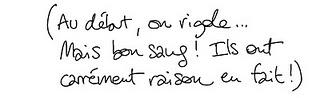 (Au début, on rigole...
Mais bon sang! Ils ont
carrément raison en fait!)